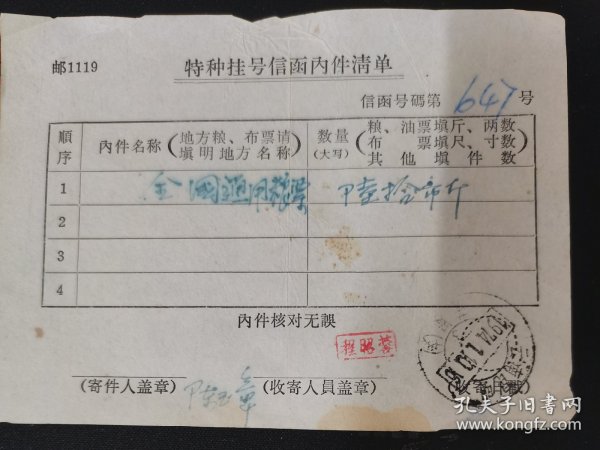 邮1119
特种挂号信函內件清单
信函号碼第647号
順序
內件名称(地方粮、布票请填明地方名称)
数量(大写)(粮、油票填斤、两数 布票填尺、寸数 其他填件数)
1 全國通用粮票 陸拾市斤
2
3
4
內件核对无誤
程昭蓉
(寄件人盖章)
(收寄人员盖章)
1974.1.30
孔夫子旧书网
www.kongfz.com